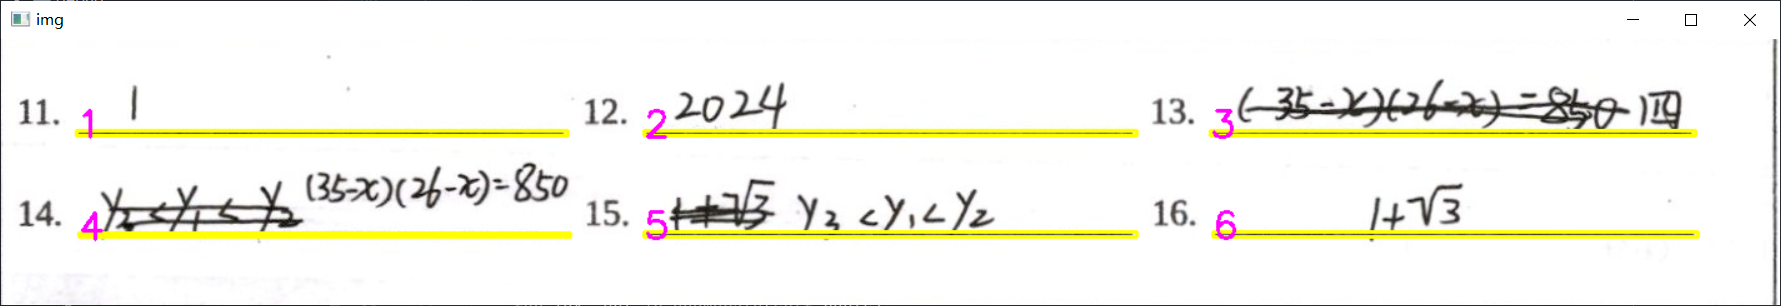 img
11. 1 1 12. 2 2024 13. 3 (35-x)(26-x)=850 四
14. 4 y₃<y₁<y₂ (35-x)(26-x)=850 15. 5 1+√3 y₃<y₁<y₂ 16. 6 1+√3